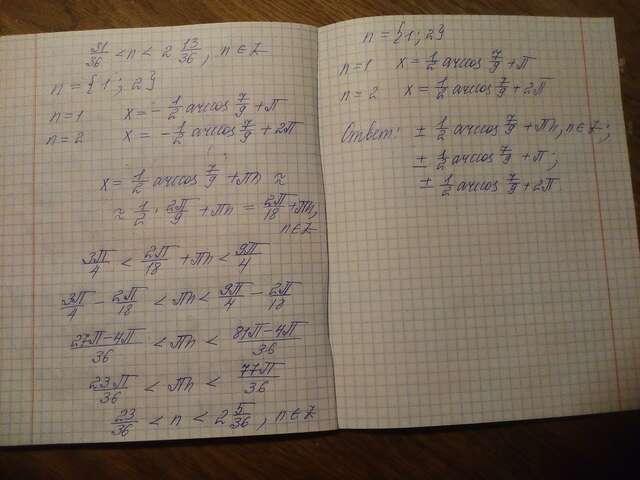 31/36 < n < 2 13/36, n ∈ Z
n = {1; 2}
n=1 x = -1/2 arccos 7/9 + π
n=2 x = -1/2 arccos 7/9 + 2π
x = 1/2 arccos 7/9 + πn ≈
≈ 1/2 · 2π/9 + πn = 2π/18 + πn,
n ∈ Z
3π/4 < 2π/18 + πn < 9π/4
3π/4 - 2π/18 < πn < 9π/4 - 2π/18
27π-4π/36 < πn < 81π-4π/36
23π/36 < πn < 77π/36
23/36 < n < 2 5/36, n ∈ Z
n = {1; 2}
n=1 x = 1/2 arccos 7/9 + π
n=2 x = 1/2 arccos 7/9 + 2π
Ответ: ± 1/2 arccos 7/9 + πn, n ∈ Z;
± 1/2 arccos 7/9 + π;
± 1/2 arccos 7/9 + 2π.